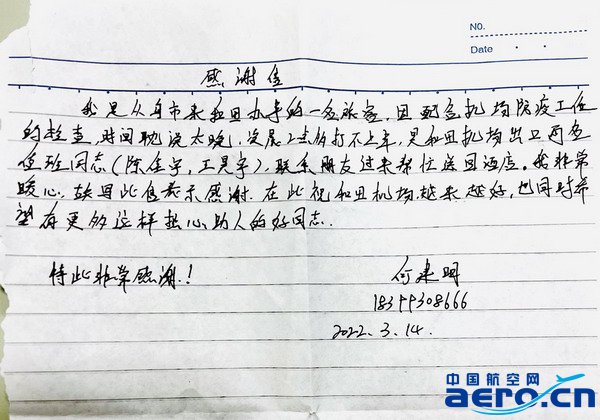 NO.
Date
感谢信
我是从乌市来和田办事的一名旅客，因配合机场防疫工作
的检查，时间耽误太晚，凌晨2点仍打不上车，是和田机场出口两名
值班同志（陈佳宇，王昊宇），联系朋友过来帮忙送回酒店。我非常
暖心，故因此信表示感谢。在此祝和田机场越来越好，也同时希
望有更多这样热心助人的好同志。
特此非常感谢！
何建明
18399308666
2022.3.14.
中国航空网
aero.cn